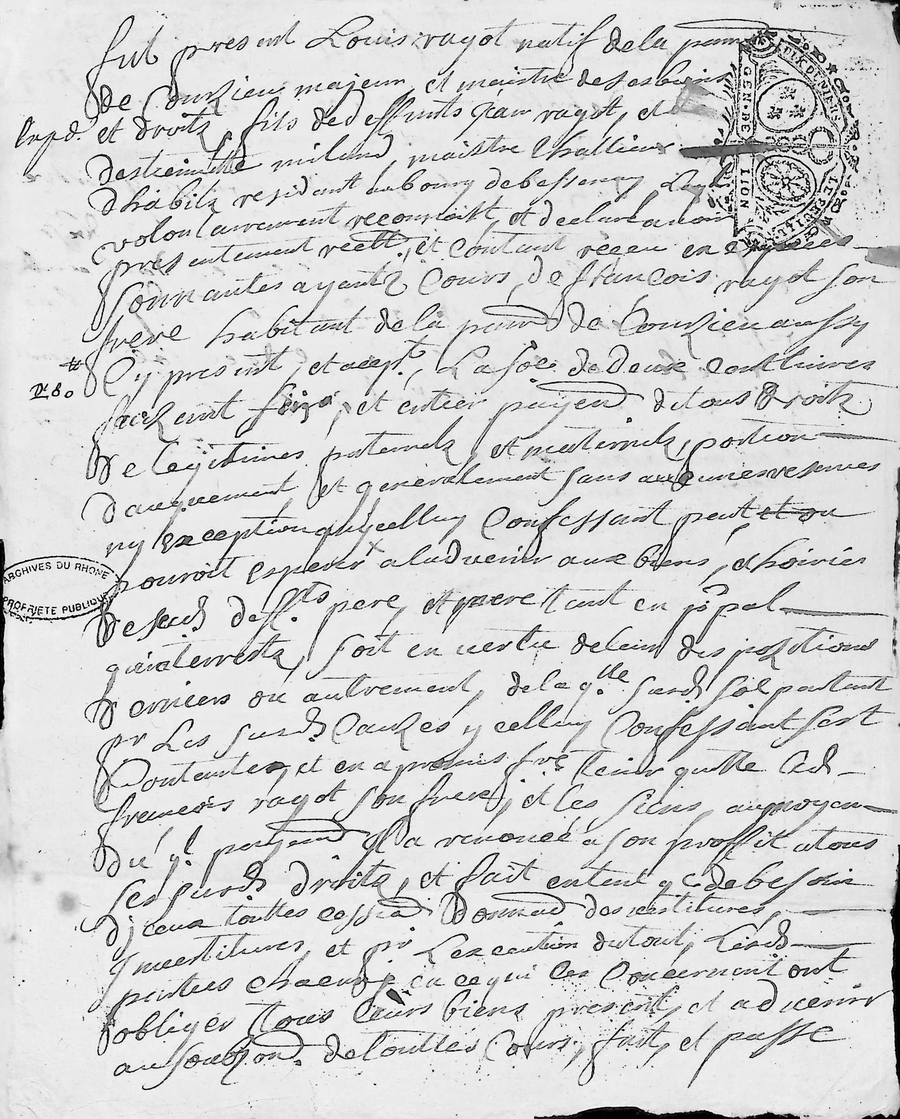 fut present Louis ragot natif de la parr
de Courzieu majeur, et maistre de ses biens
Exp.d.
et droits, fils de deffunts ragot, et
destiennette miland, maistre Challieur
dhabits residant au bourg de bessenay, Leql
volontairement reconnoist, et declare avoir
presentement reell.t, et contant receu en especes
sonnantes ayants Cours, de francois ragot son
frere habitant de la parr.e de Courzieu aussy
Cy present, et acept.t, La soe. de deux cent livres
180
faizant et entier payem.t de tous Droits
De legitimes paternels, et maternels, portion
daugment, et generalement sans aucunes reserves
ny exception qu'ycelluy Confessant peut et ou
pouroit esperer a ladvenir aux biens, et hoiries
De sesd. deff.ts pere, et mere tant en prpal
qu'interrests, soit en vertu de leur dispozitions
Derniers ou autrement, de laq.lle susd. soe partant
pr Les susd. Cauzes ycelluy Confessant sest
Contanté, et en a promis tenir quitte led.
francois ragot son frere, et les siens, au moyen
du q.l payem.t Il a renoncé a son proffit a tous
ses susd. droits, et fait en tent q.e de besoin
Diceux touttes Devestitures,
Investitures, et pr. Lexecution du tout, Lesd.
parties chacune en ce qui Les Concernent ont
obligez tous Leurs biens present, et advenir
de touttes Cours, fait, et passé
GEN. DE LION
ARCHIVES DU RHONE
PROPRIETE PUBLIQUE